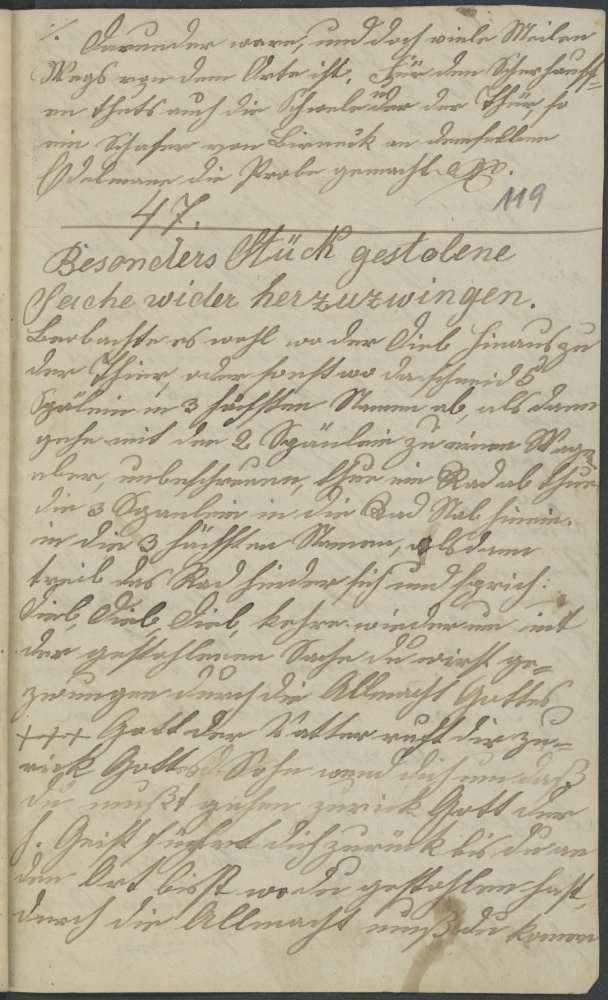 ·/. darunder ware, und doch viele Meilen
Wegs von dem Orte ist. Für den Scherhauff=
en thets auch die Schwele der Thür, so
ein Schafer von Birneck an demselben
Edelmann die Probe gemacht.
119
47.
Besonders Stück gestolene
Sache wider herzuzwingen.
Beobachte es wohl wo der Dieb hinaus zu
der Thier, oder sonst wo da schneid
Spälein in 3 höchsten Namen ab, als dann
gehe mit den Spänlein zu einem Wage
aber, unbeschrauen, thue ein Rad ab thue
die 3 Spänlein in die Rad Nab hinein.
in die 3 höchsten Namen, alsdann
treib das Rad hinder sich und sprich:
Dieb, Dieb, Dieb, kehre wiederum mit
der gestohlenen Sache du wirst ge=
zwungen durch die Allmacht Gottes
+++ Gott der Vatter ruft dir zu=
rick Gott Sohn wend dich um daß
du mußt gehen zurück Gott der
h. Geist führt dich zurück bis du an
den Ort bist wo du gestohlen hast,
durch die Allmacht mußt du komen